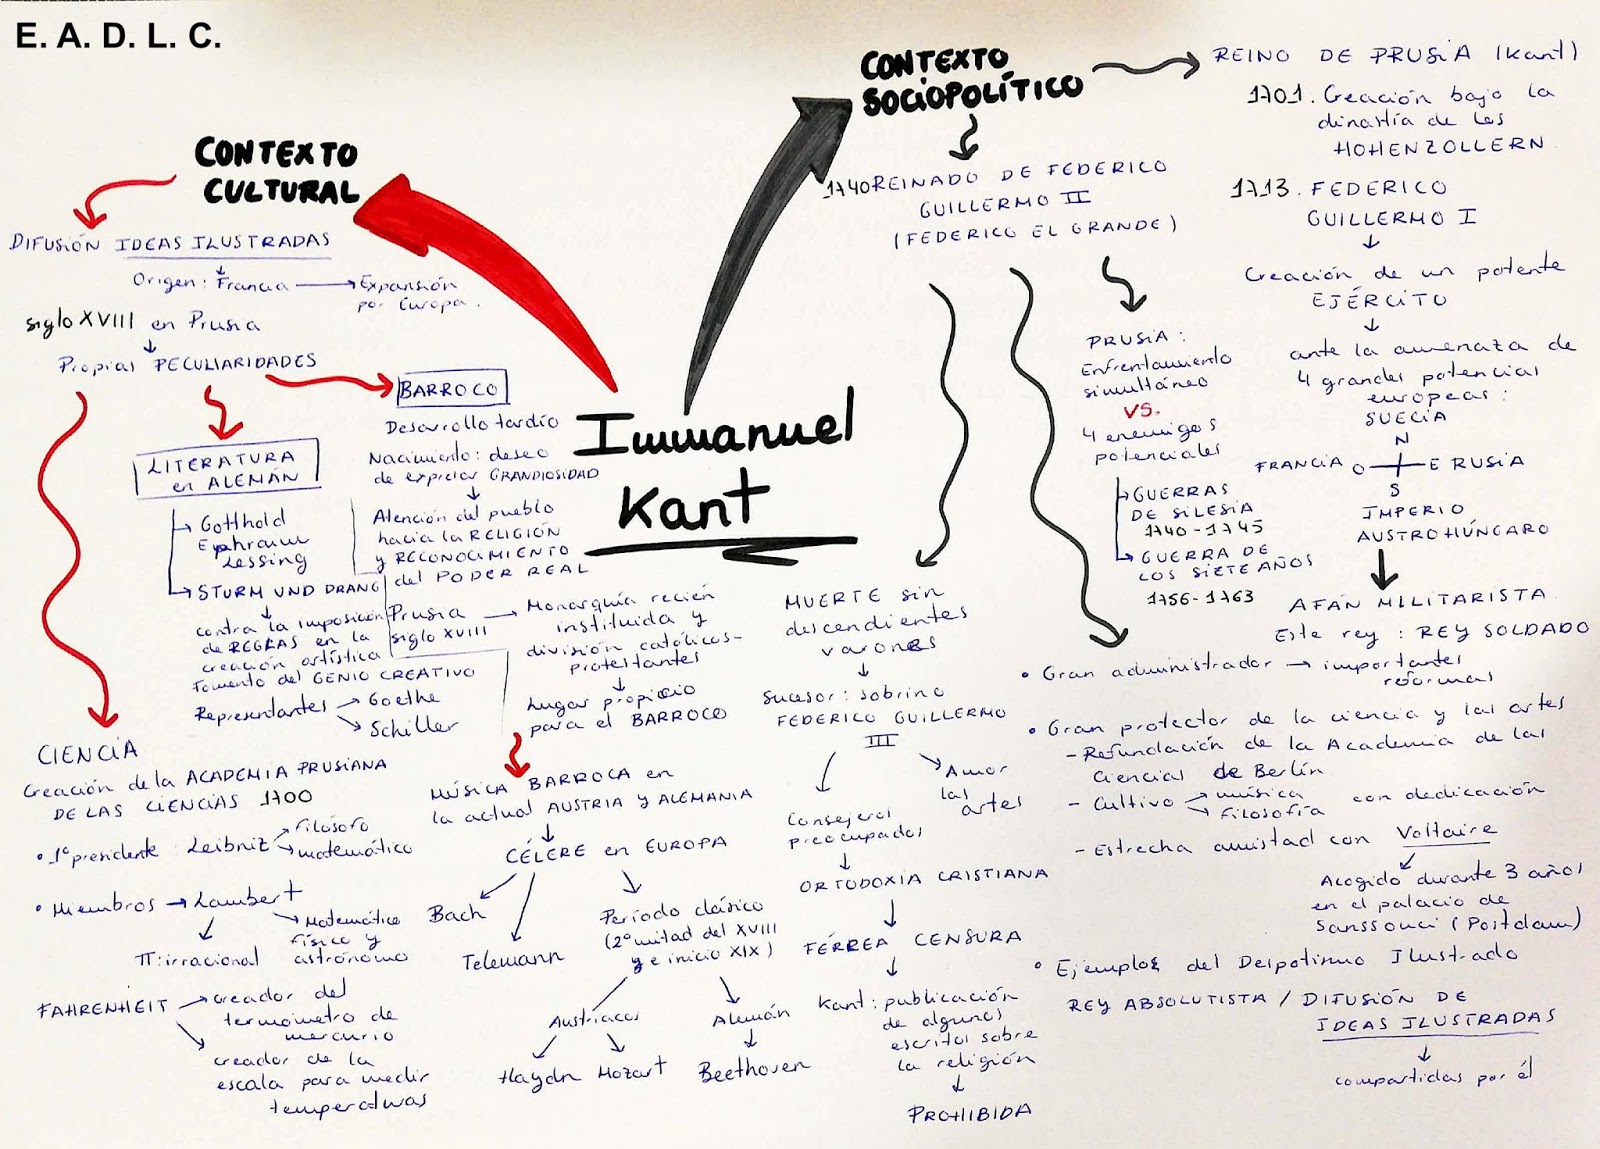 E. A. D. L. C.
Immanuel
Kant
CONTEXTO
CULTURAL
DIFUSIÓN IDEAS ILUSTRADAS
Origen: Francia
Expansión
por Europa.
siglo XVIII en Prusia
Propias PECULIARIDADES
BARROCO
Desarrollo tardío
Nacimiento: deseo
de expresar GRANDIOSIDAD
Atención del pueblo
hacia la RELIGIÓN
y RECONOCIMIENTO
del PODER REAL
Prusia
siglo XVIII
Monarquía recién
instituida y
división católicos-
protestantes
Lugar propicio
para el BARROCO
MÚSICA BARROCA en
la actual AUSTRIA y ALEMANIA
CÉLEBRE en EUROPA
Bach
Telemann
Período clásico
(2º mitad del XVIII
y e inicio XIX)
Austriacos
Haydn
Mozart
Alemán
Beethoven
LITERATURA
en ALEMÁN
Gotthold
Ephraim
Lessing
STURM UND DRANG
contra la imposición
de REGLAS en la
creación artística
Fomento del GENIO CREATIVO
Representantes
Goethe
Schiller
CIENCIA
Creación de la ACADEMIA PRUSIANA
DE LAS CIENCIAS 1700
• 1º presidente: Leibniz
filósofo
matemático
• Miembros
Lambert
Matemático
físico y
astrónomo
π: irracional
FAHRENHEIT
creador del
termómetro de
mercurio
creador de la
escala para medir
temperaturas
CONTEXTO
SOCIOPOLÍTICO
REINO DE PRUSIA (Kant)
1701. Creación bajo la
dinastía de los
HOHENZOLLERN
1713. FEDERICO
GUILLERMO I
Creación de un potente
EJÉRCITO
ante la amenaza de
4 grandes potencias
europeas:
SUECIA
N
FRANCIA O
E RUSIA
S
IMPERIO
AUSTROHÚNGARO
AFÁN MILITARISTA
Este rey: REY SOLDADO
1740 REINADO DE FEDERICO
GUILLERMO II
(FEDERICO EL GRANDE)
PRUSIA:
Enfrentamiento
simultáneo
VS.
4 enemigos
potenciales
GUERRAS
DE SILESIA
1740-1745
GUERRA DE
LOS SIETE AÑOS
1756-1763
MUERTE sin
descendientes
varones
Sucesor: sobrino
FEDERICO GUILLERMO
III
Amor
las
artes
Consejeros
preocupados
ORTODOXIA CRISTIANA
FÉRREA CENSURA
Kant: publicación
de algunos
escritos sobre
la religión
PROHIBIDA
• Gran administrador → importantes
reformas
• Gran protector de la ciencia y las artes
- Refundación de la Academia de las
Ciencias de Berlín
- Cultivo
música
filosofía
con dedicación
- Estrecha amistad con Voltaire
Acogido durante 3 años
en el palacio de
Sanssouci (Postdam)
• Ejemplos del Despotismo Ilustrado
REY ABSOLUTISTA / DIFUSIÓN DE
IDEAS ILUSTRADAS
compartidas por él